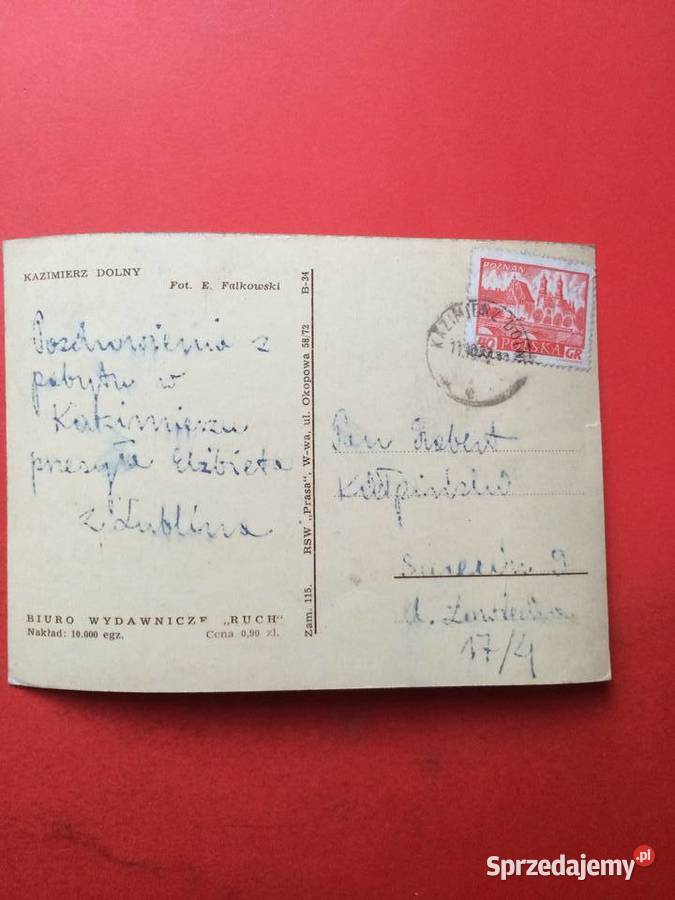 KAZIMIERZ DOLNY
Fot. E. Falkowski
Pozdrowienia z
pobytu w
Kazimierzu
przesyła Elżbieta
z Lublina
BIURO WYDAWNICZE „RUCH”
Nakład: 10.000 egz.
Cena 0,90 zł.
Zam. 115. RSW „Prasa”, W-wa, ul. Okopowa 58/72 B-34
POZNAŃ
40 POLSKA GR
KAZIMIERZ DOLNY
Pan Robert
17/4
Sprzedajemy.pl